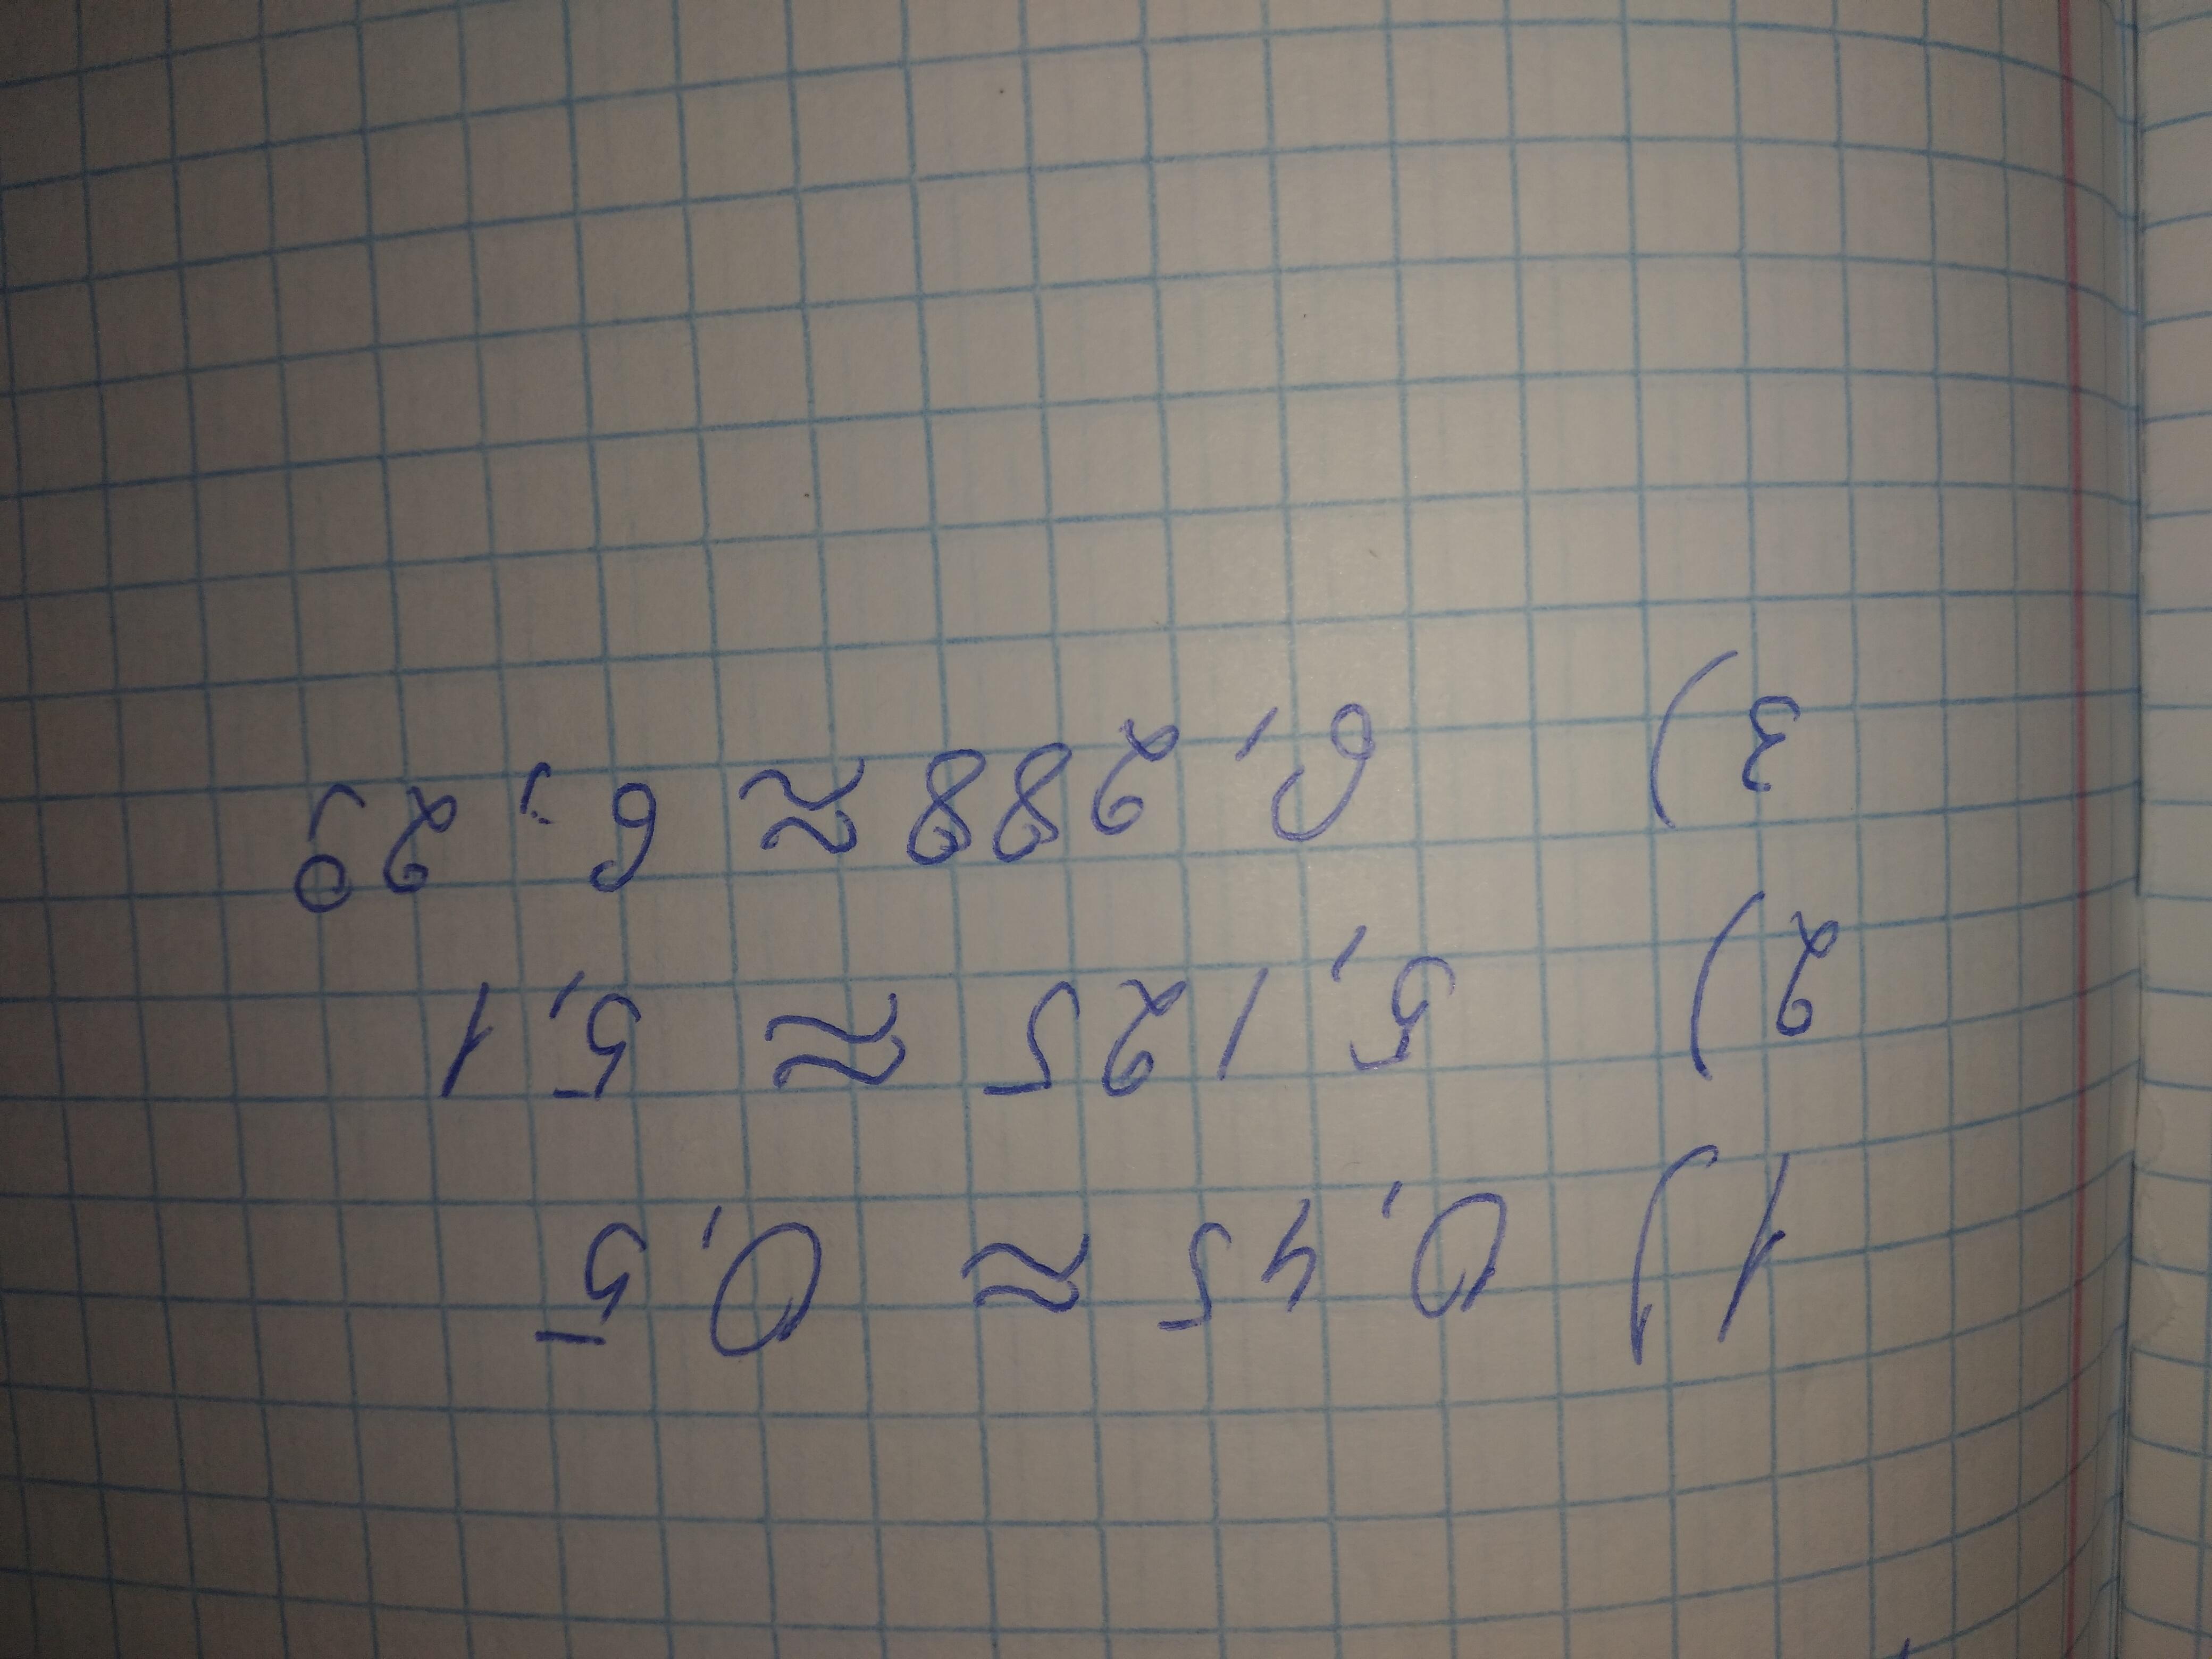 1) 0,45 ≈ 0,5
2) 5,125 ≈ 5,1
3) 6,288 ≈ 6,29